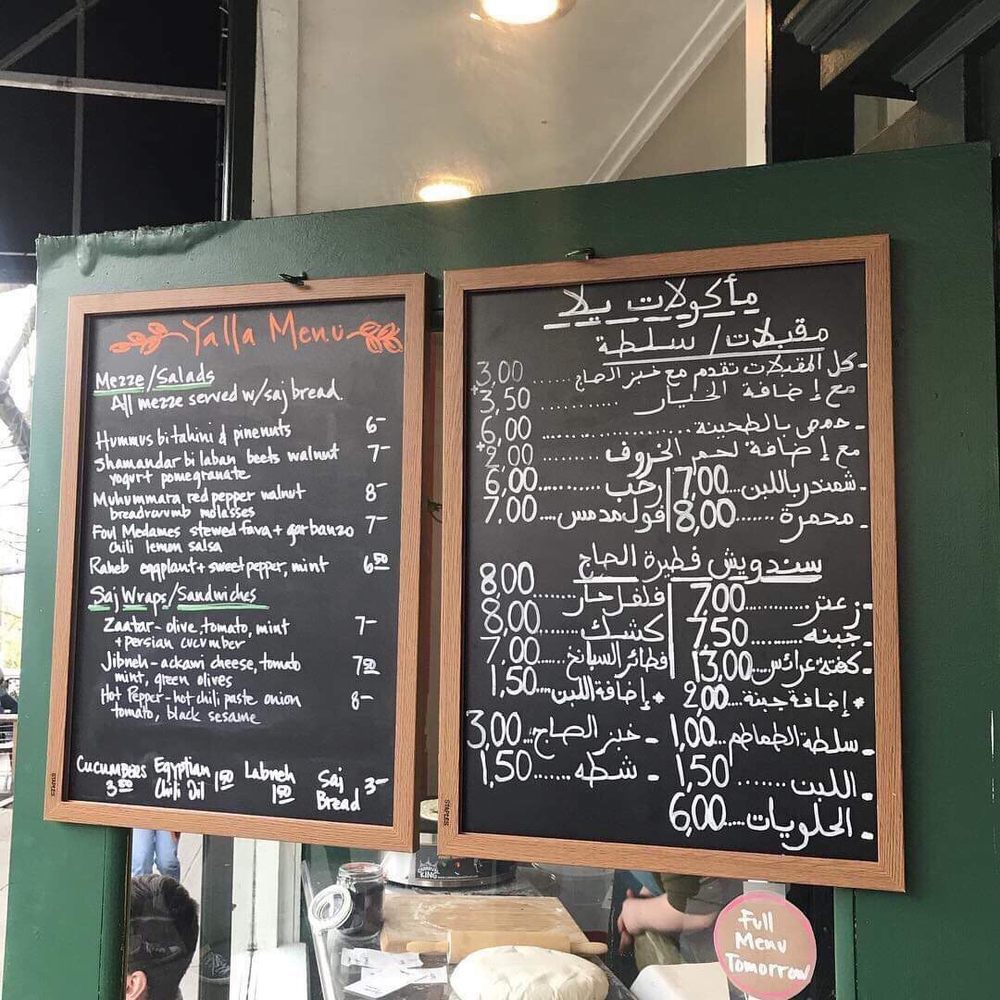 Yalla Menu
Mezze/Salads
All mezze served w/saj bread.
Hummus bi tahini & pinenuts 6-
Shamandar bi laban beets walnut 7-
yogurt pomegranate
Muhummara red pepper walnut 8-
breadcrumb molasses
Foul Medames stewed fava + garbanzo 7-
chili lemon salsa
Raheb eggplant + sweet pepper, mint 6 50
Saj Wraps/Sandwiches
Zaatar - olive, tomato, mint 7-
+ persian cucumber
Jibneh - ackawi cheese, tomato 7 50
mint, green olives
Hot Pepper - hot chili paste onion 8-
tomato, black sesame
Cucumbers Egyptian 1 50 Labneh Saj 3-
3 50 Chili Oil 1 50 Bread
STAPLES
مأكولات يلا
مقبلات / سلطة
- كل المقبلات تقدم مع خبز الصاج ...... 3,00
مع إضافة الخيار .......... +3,50
- حمص بالطحينة .......... 6,00
مع إضافة لحم الخروف .......... +2,00
- شمندر باللبن ... 7,00 راحب ........ 6,00
- محمرة ....... 8,00 فول مدمس .... 7,00
سندويش فطيرة الصاج
- زعتر ......... 7,00 فلفل حار ..... 8,00
- جبنه ......... 7,50 كشك ....... 8,00
- كفتة عرائس .. 13,00 فطائر السبانخ ... 7,00
* إضافة جبنة .. 2,00 * إضافة اللبن ... 1,50
- سلطة الطماطم .. 1,00 - خبز الصاج ... 3,00
- اللبن ...... 1,50 - شطه ....... 1,50
- الحلويات .... 6,00
STAPLES
KING
Full
Menu
Tomorrow